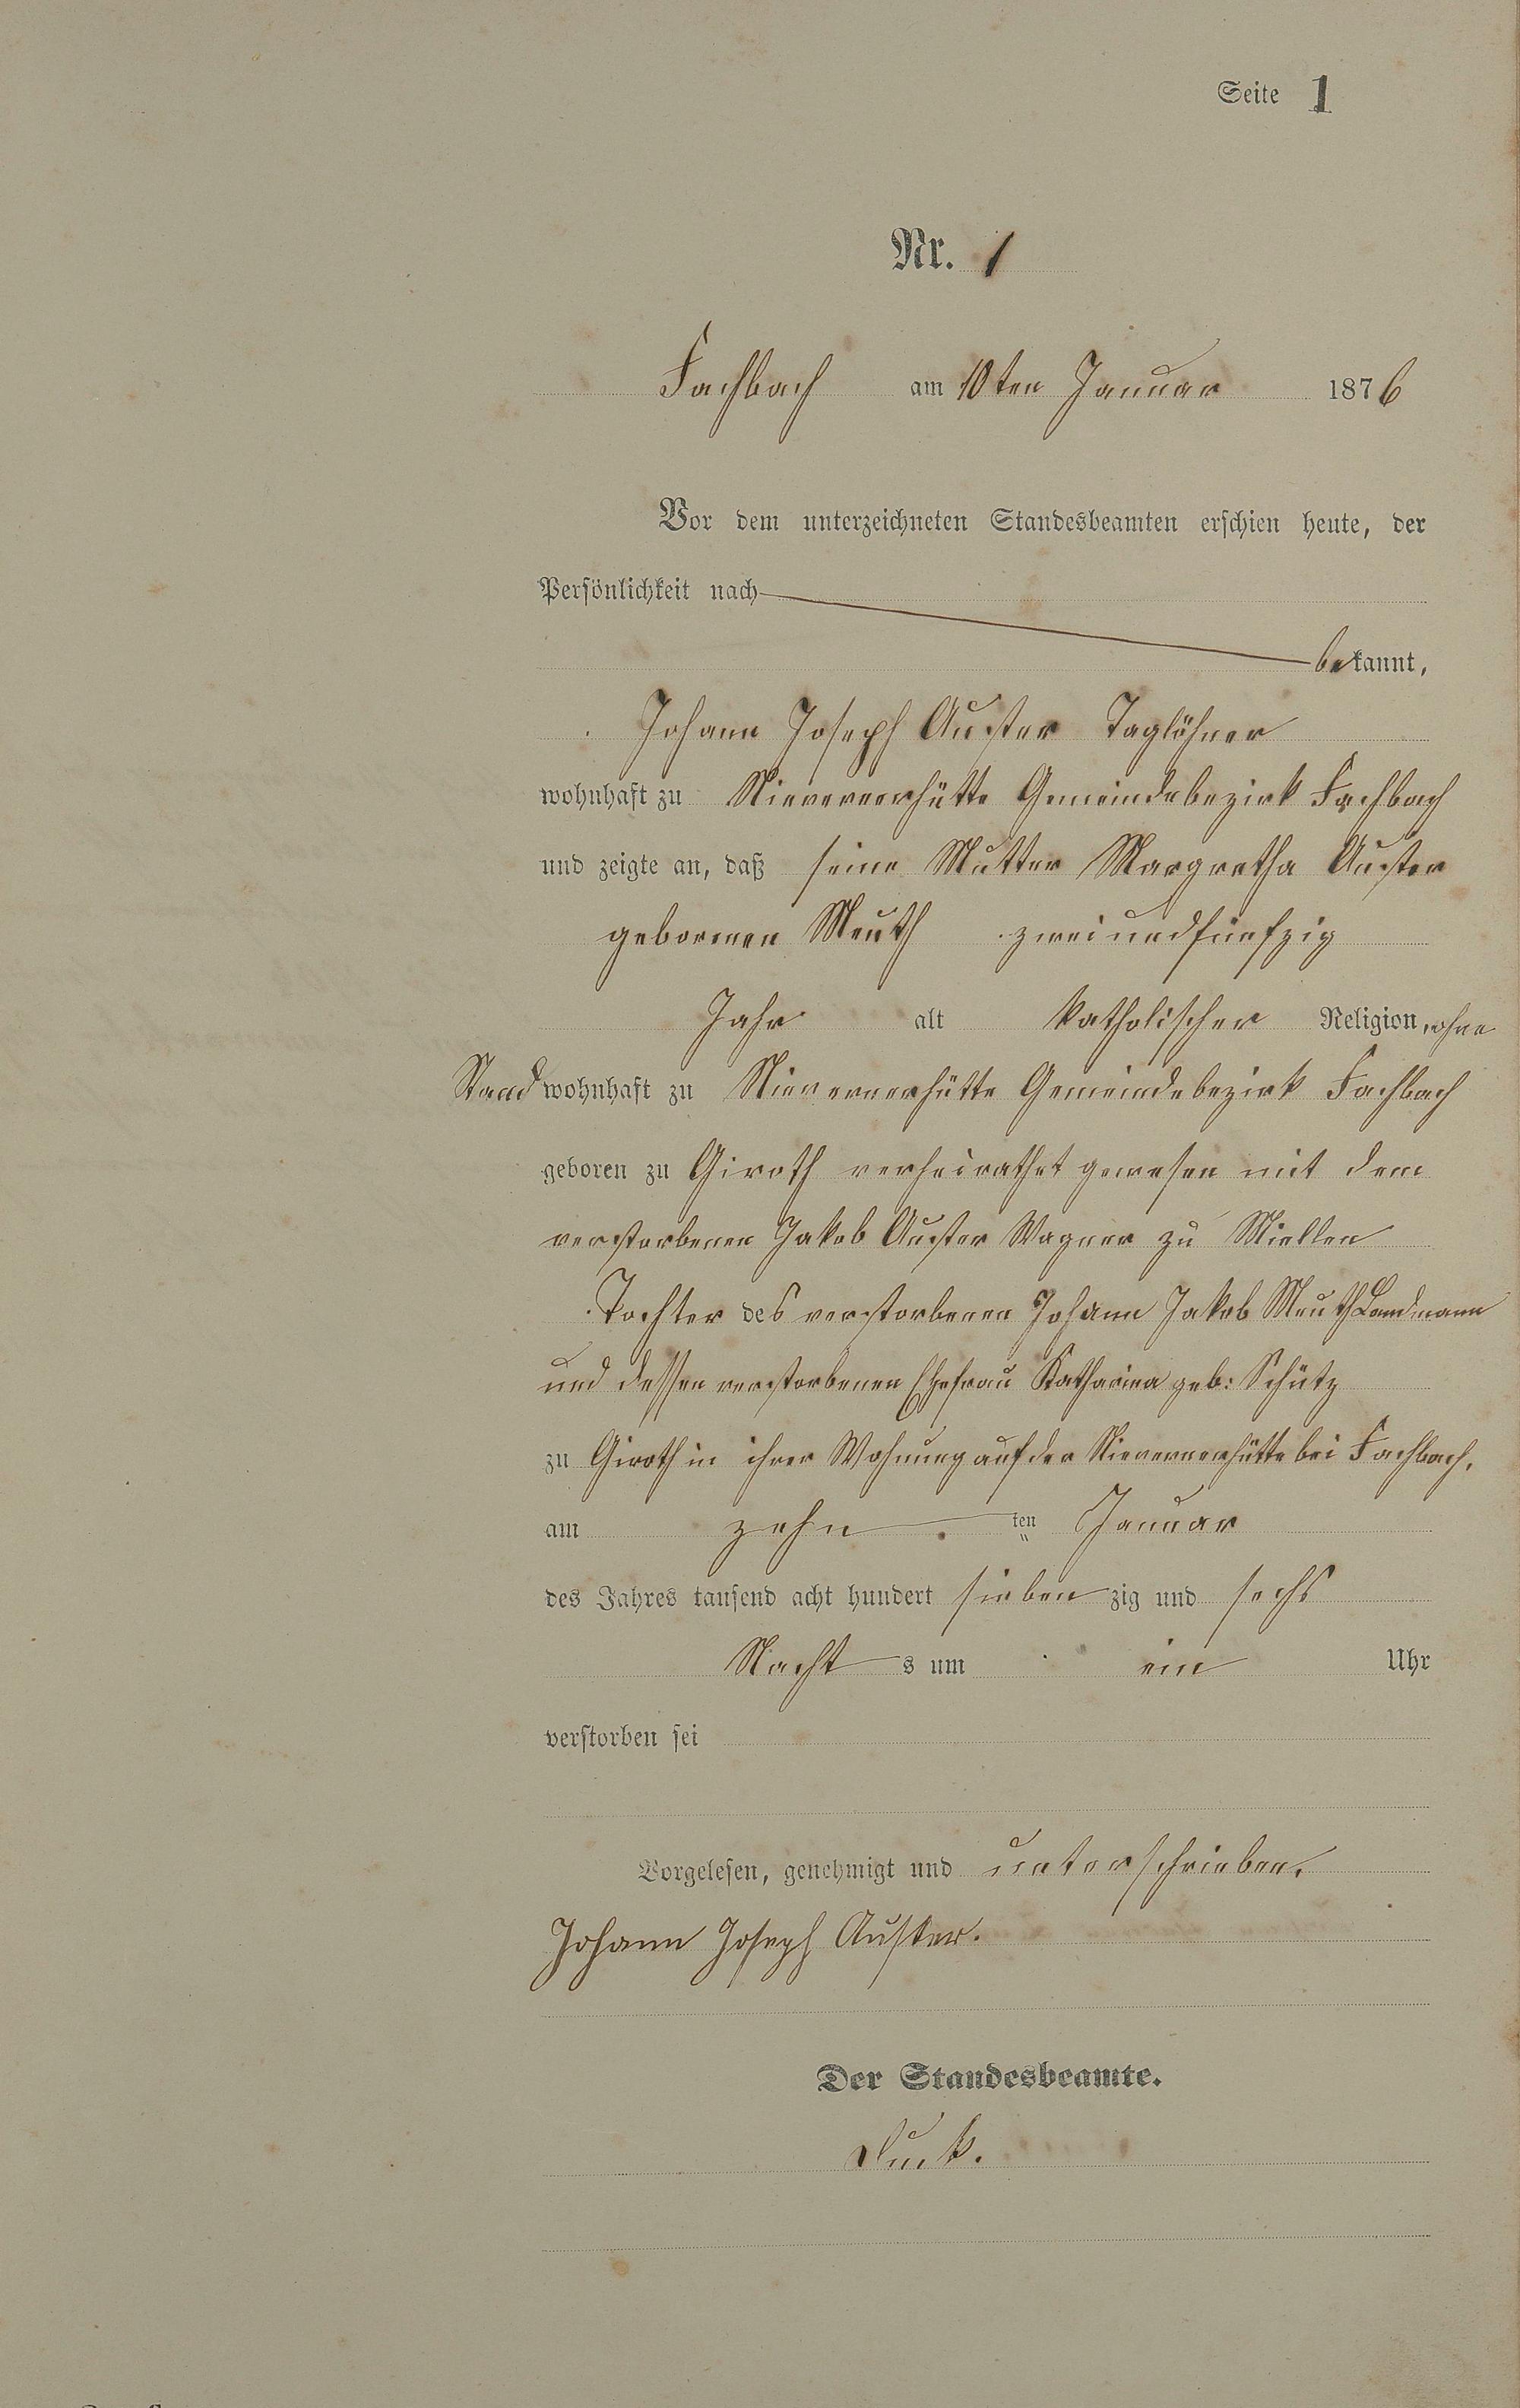 Seite 1
Nr. 1
Fachbach am 10ten Januar 1876
Vor dem unterzeichneten Standesbeamten erschien heute, der
Persönlichkeit nach
bekannt,
Johann Joseph Auster Taglöhner
wohnhaft zu Nievernerhütte Gemeindebezirk Fachbach
und zeigte an, daß seine Mutter Margretha Auster
geborenen Meuth zweiundfünfzig
Jahr alt katholischer Religion, ohne
Stand wohnhaft zu Nievernerhütte Gemeindebezirk Fachbach
geboren zu Giroth verheirathet gewesen mit dem
verstorbenen Jakob Auster Wagner zu Miellen
Tochter des verstorbenen Johann Jakob Meuth Landmann
und dessen verstorbenen Ehefrau Katharina geb: Schütz
zu Giroth in ihrer Wohnung auf der Nievernerhütte bei Fachbach,
am zehn ten Januar
des Jahres tausend acht hundert sieben zig und sechs
Nacht s um ein Uhr
verstorben sei
Vorgelesen, genehmigt und unterschrieben.
Johann Joseph Auster.
Der Standesbeamte.